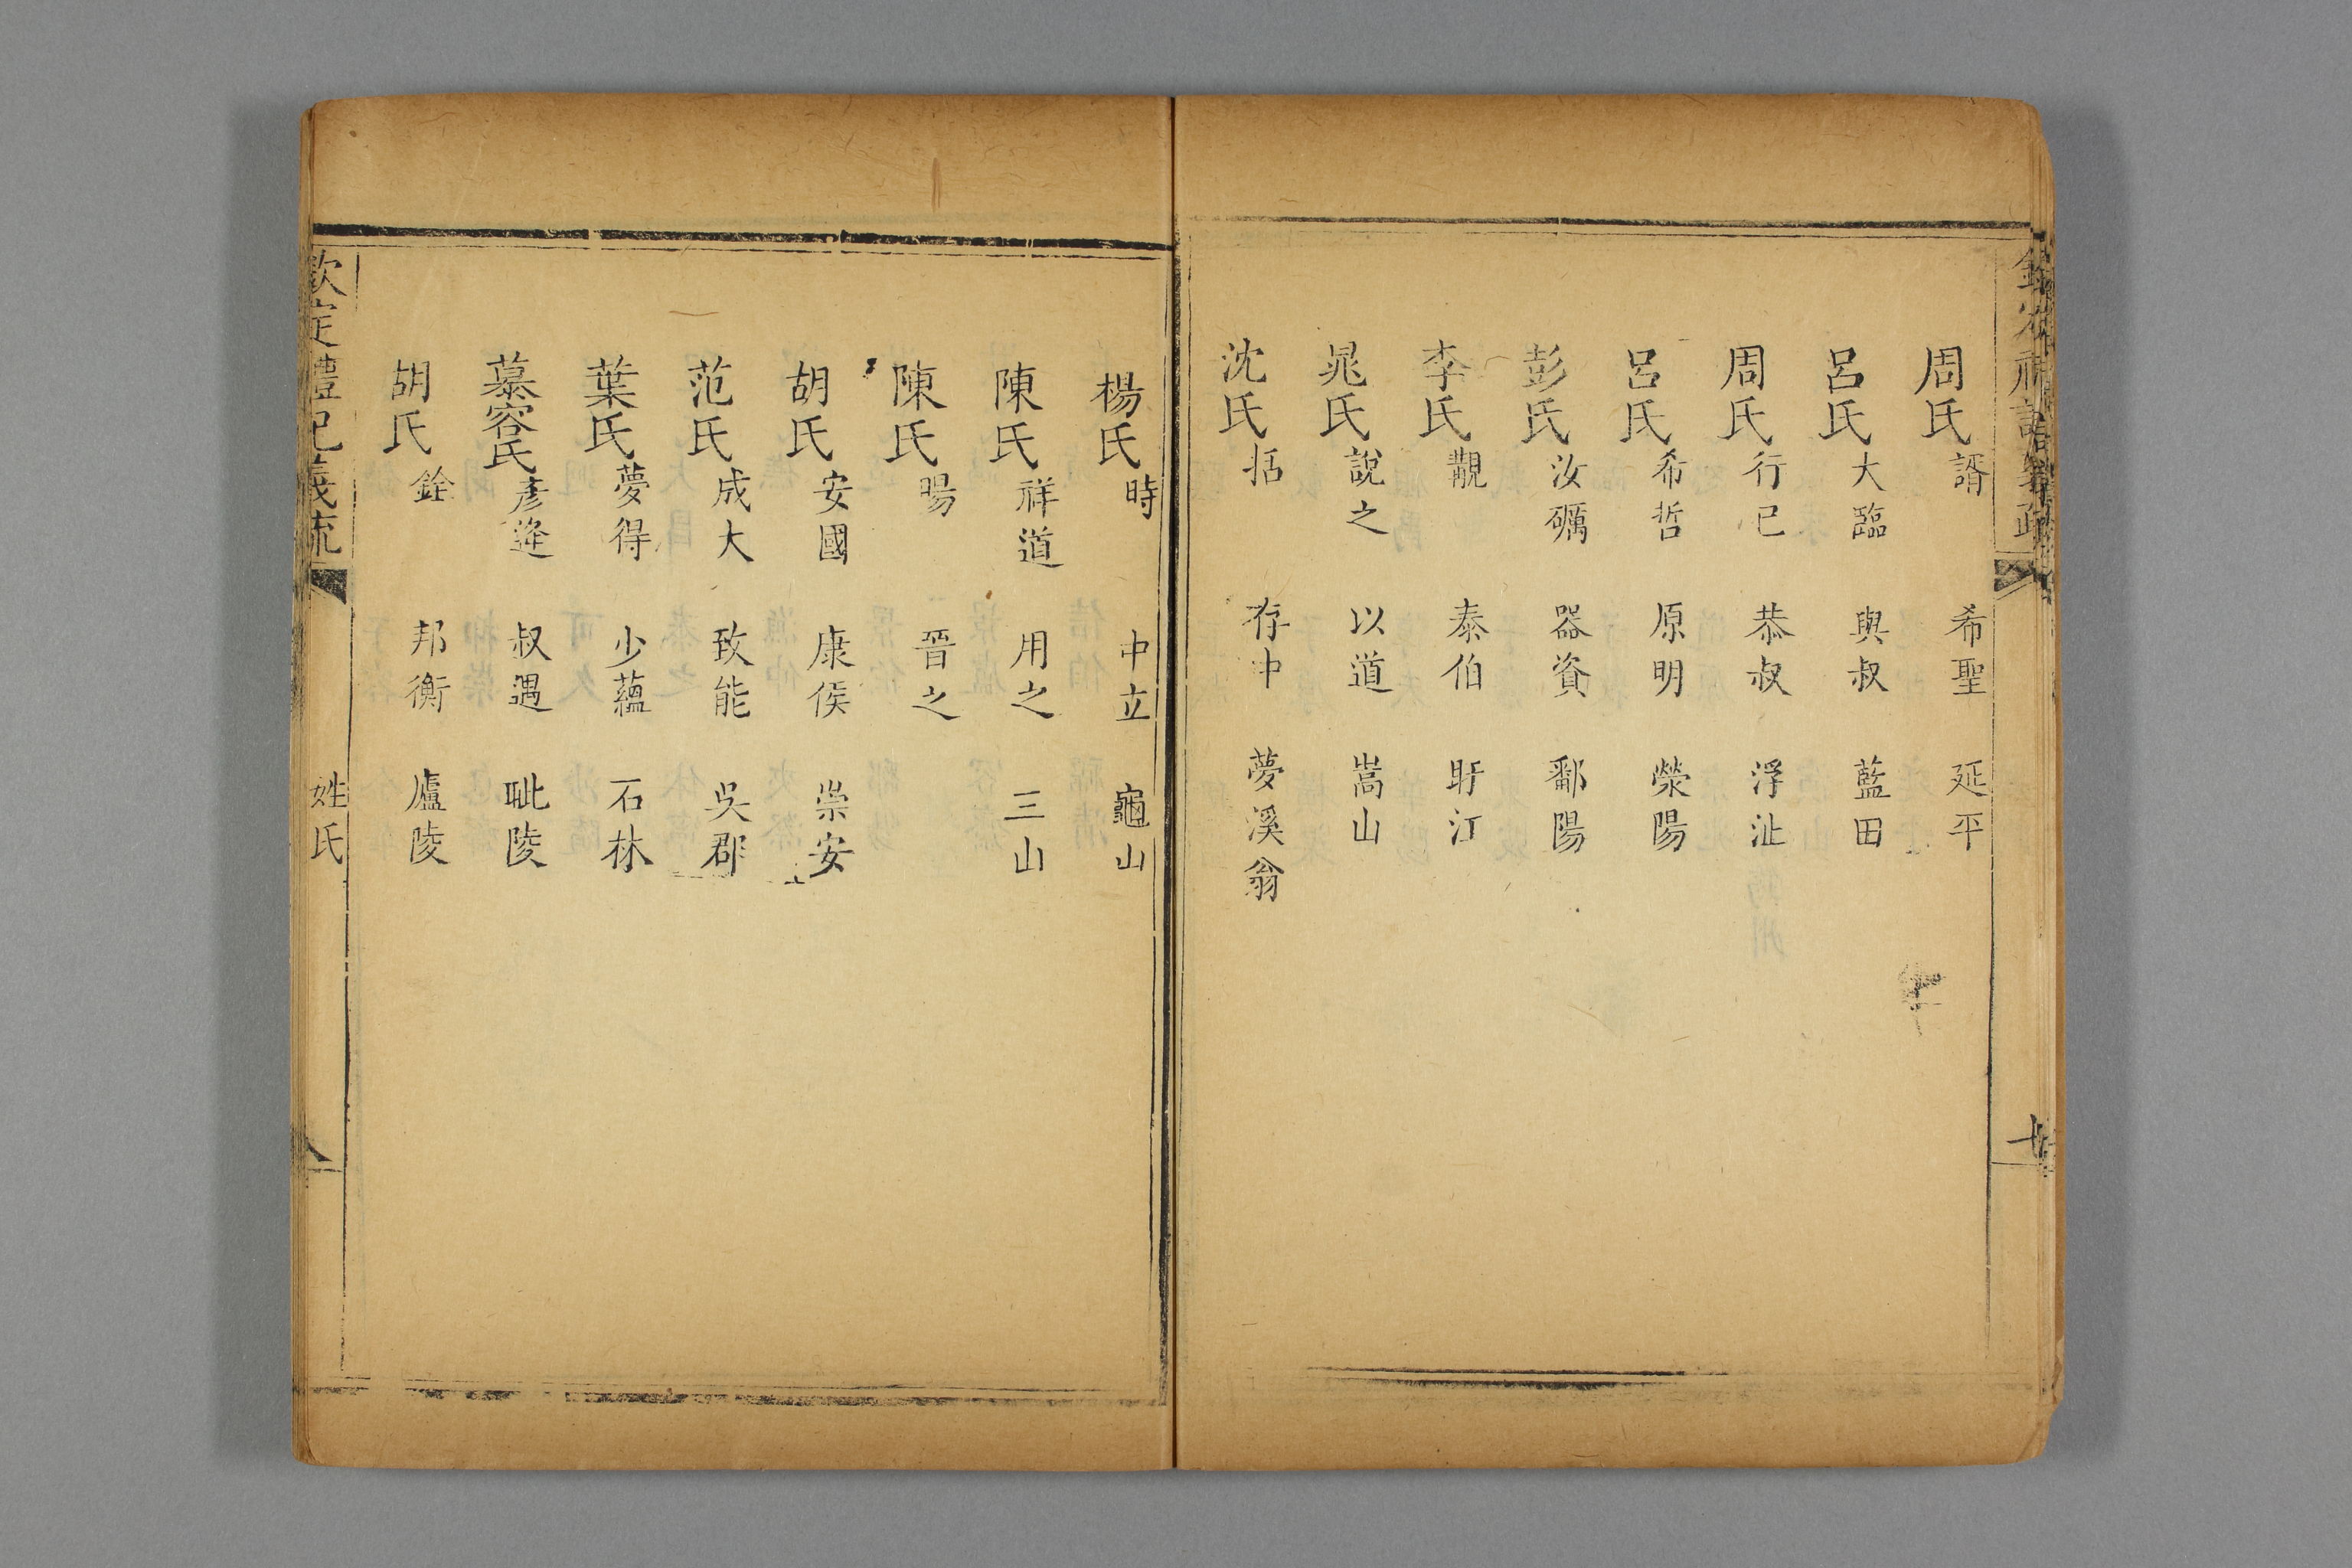 周氏諝 希聖 延平
呂氏大臨 與叔 藍田
周氏行已 恭叔 浮沚
呂氏希哲 原明 滎陽
彭氏汝礪 器資 鄱陽
李氏覯 泰伯 盱江
晁氏說之 以道 嵩山
沈氏括 存中 夢溪翁
楊氏時 中立 龜山
陳氏祥道 用之 三山
陳氏暘 晉之
胡氏安國 康侯 崇安
范氏成大 致能 吳郡
葉氏夢得 少蘊 石林
慕容氏彥逄 叔遇 毗陵
胡氏銓 邦衡 廬陵
欽定禮記義疏 姓氏 八